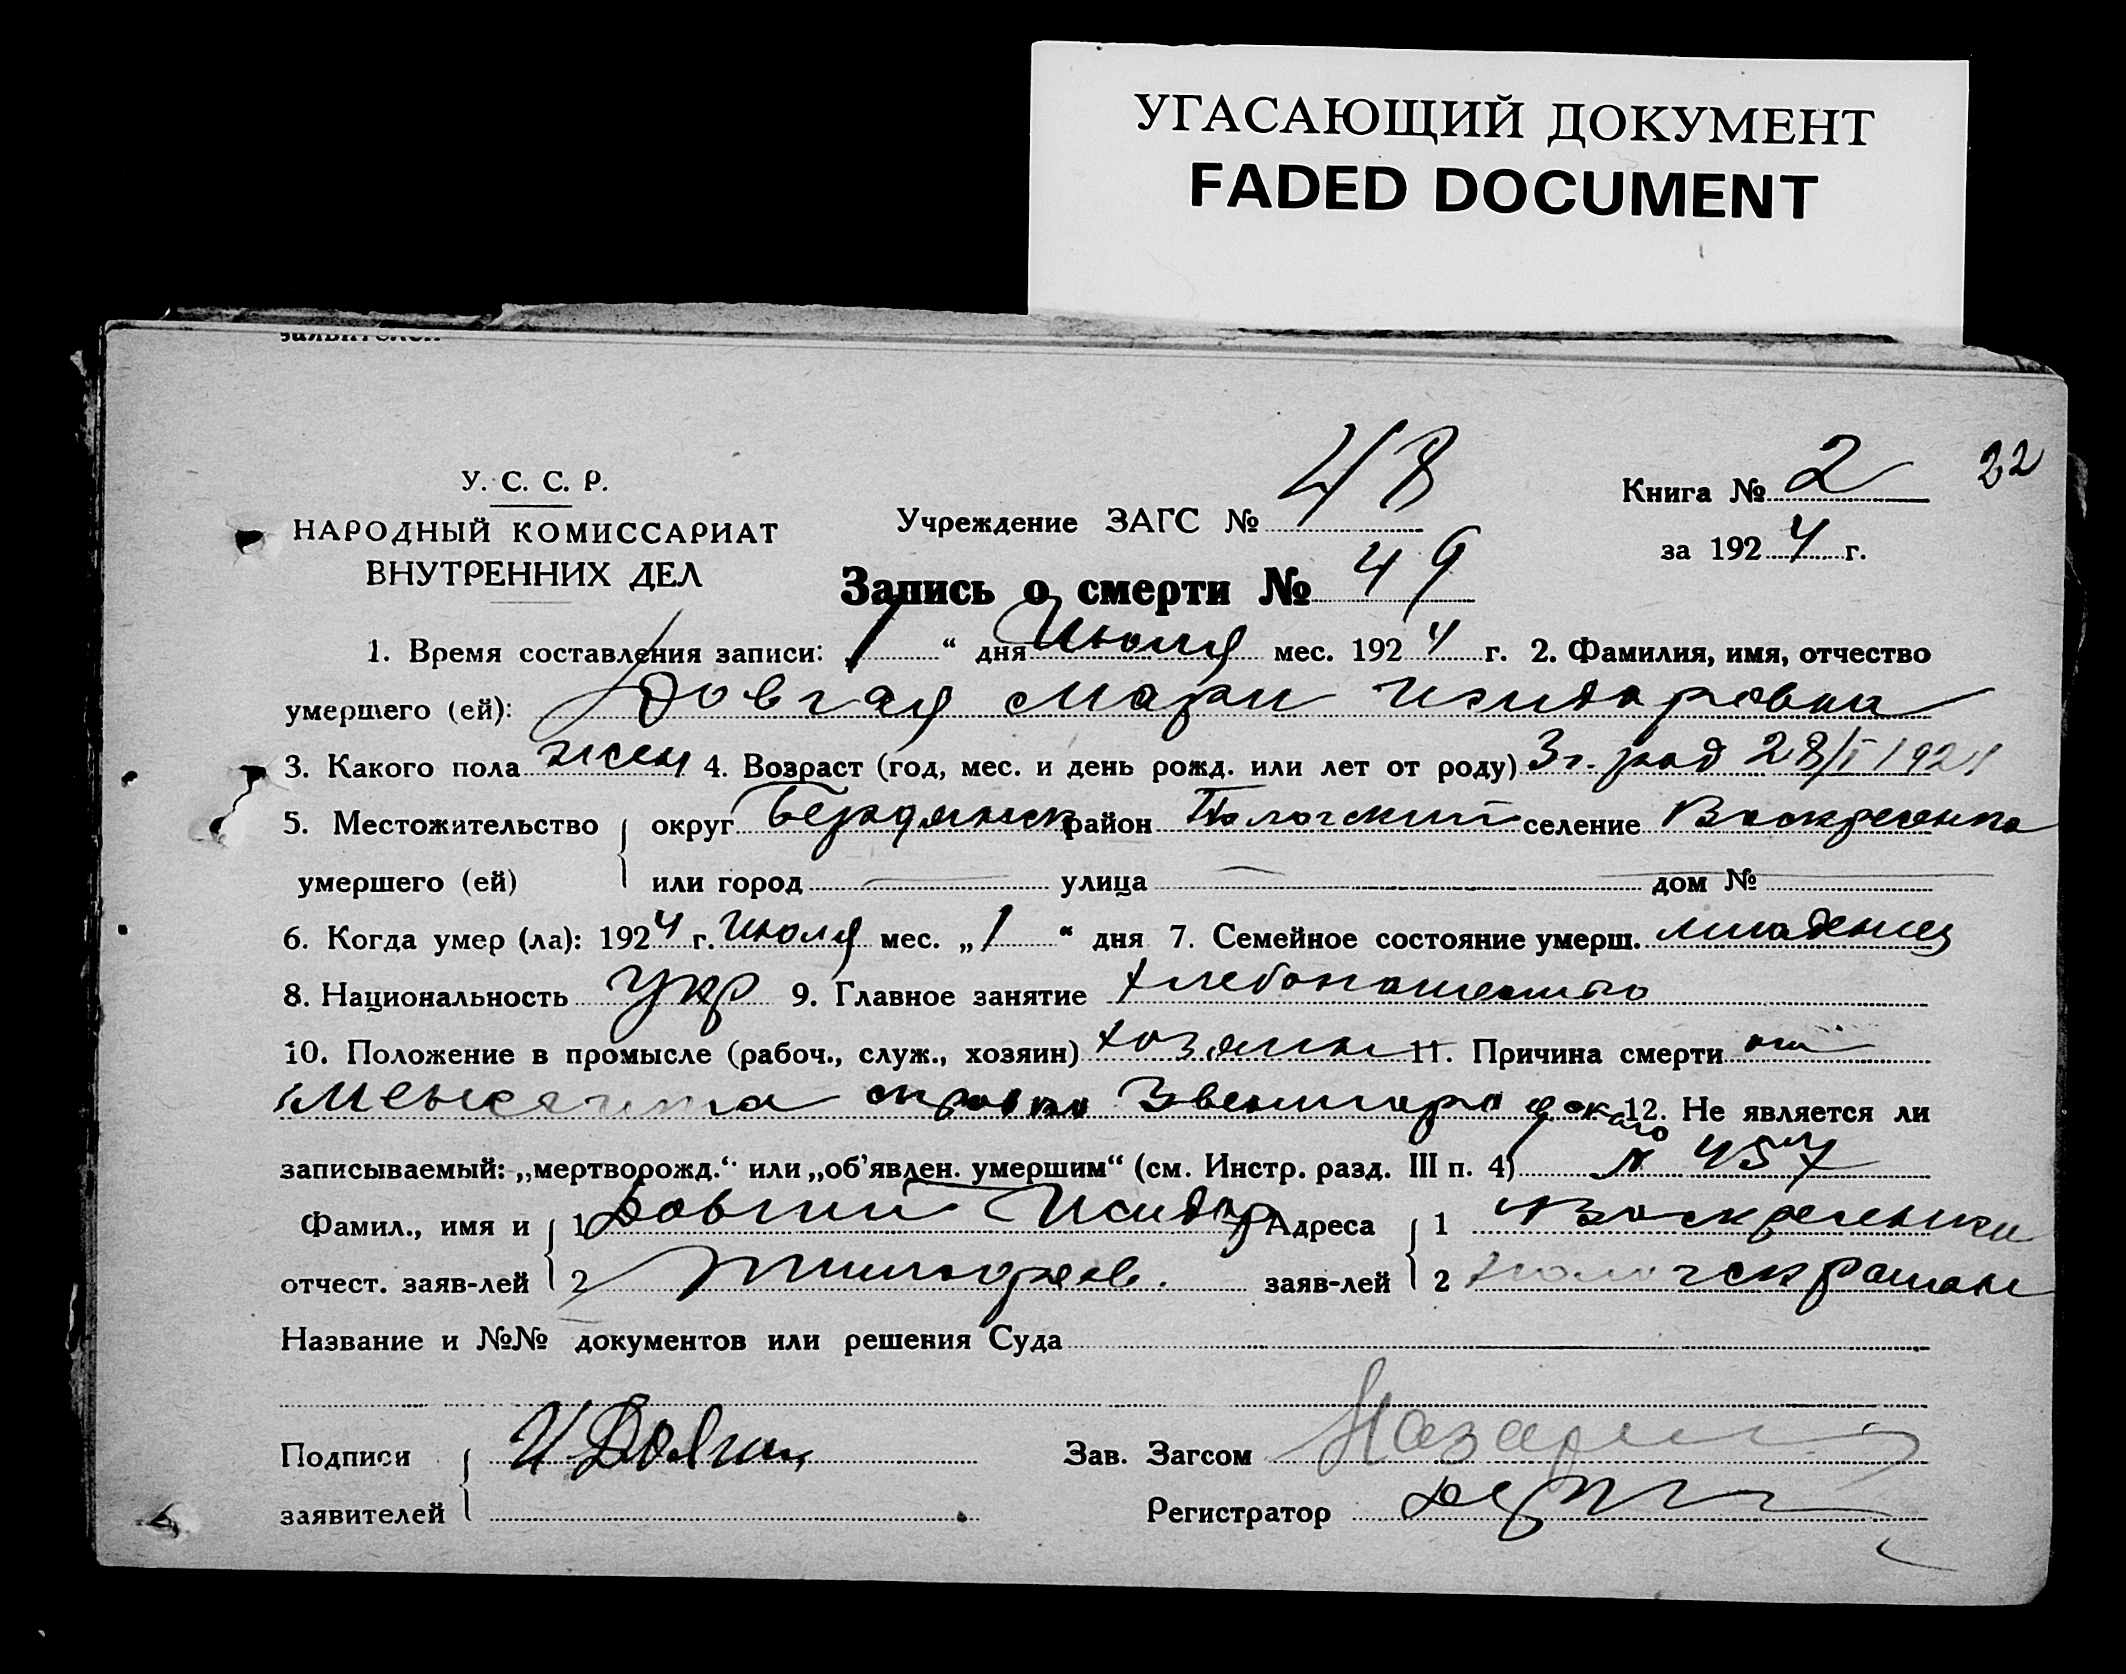 УГАСАЮЩИЙ ДОКУМЕНТ
FADED DOCUMENT
заявителей
У. С. С. Р.
НАРОДНЫЙ КОМИССАРИАТ
ВНУТРЕННИХ ДЕЛ
Учреждение ЗАГС № 48
Книга № 2
22
за 1924 г.
Запись о смерти № 49
1. Время составления записи: 1 “ дня Июля мес. 1924 г. 2. Фамилия, имя, отчество
умершего (ей): Довгая Мария Исидоровна
3. Какого пола жен 4. Возраст (год, мес. и день рожд. или лет от роду) 3 г. род 28/I 1921
5. Местожительство округ Бердянск район Пологский селение Воскресенка
умершего (ей) или город — улица — дом № —
6. Когда умер (ла): 1924 г. Июля мес. „1“ дня 7. Семейное состояние умерш. младенец
8. Национальность Укр 9. Главное занятие хлебопашество
10. Положение в промысле (рабоч., служ., хозяин) хозяин 11. Причина смерти от
12. Не является ли
записываемый: „мертворожд.“ или „об’явлен. умершим“ (см. Инстр. разд. III п. 4) № 457
Фамил., имя и 1 Довгий Исидор Адреса 1 Воскресенка
отчест. заяв-лей 2 заяв-лей 2
Название и №№ документов или решения Суда
Подписи И Довгий Зав. Загсом
заявителей Регистратор